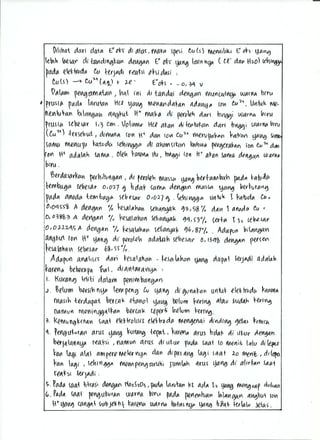 Dilihat dari data E° sel di atas, maka spesi Cu(s) memiliki E° sel yang
lebih besar di bandingkan dengan E° sel yang lainnya (Cl⁻ dan H₂O) sehingga
pada elektroda Cu terjadi reaksi oksidasi.
Cu(s) → Cu²⁺(aq) + 2e⁻ E° sel = -0,34 V
Dalam pengamatan, hal ini di tandai dengan munculnya warna biru
pada larutan HCl yang menandakan adanya ion Cu²⁺. Untuk me-
nentukan bilangan angkut H⁺ maka di peroleh dari tinggi warna biru
sebesar 1,3 cm. Volume HCl akan di tentukan dari tinggi warna biru
(Cu²⁺) tersebut, dimana ion H⁺ dan ion Cu²⁺ merupakan kation yang sama-
sama menuju katoda sehingga di asumsikan bahwa pergerakan ion Cu²⁺ dan
ion H⁺ adalah sama. Oleh karena itu, tinggi ion H⁺ akan sama dengan warna
biru.
Berdasarkan perhitungan, di peroleh massa yang bertambah pada katoda
tembaga sebesar 0,027 g tidak sama dengan massa yang berkurang
pada anoda tembaga sebesar 0,027 g. Sehingga untuk I katoda Cu =
0,04558 A dengan % kesalahan sebanyak 99,58 % dan I anoda Cu =
0,03883 A dengan % kesalahan sebanyak 99,53%, serta I₃ sebesar
0,022295 A dengan % kesalahan sebanyak 94,87%. Adapun bilangan
angkut ion H⁺ yang di peroleh adalah sebesar 0,1398 dengan persen
kesalahan sebesar 83,55%.
Adapun analisis dari kesalahan-kesalahan yang dapat terjadi adalah
karena beberapa hal, diantaranya:
1. Kurang teliti dalam penimbangan
2. Belum bersihnya lempeng Cu yang digunakan untuk elektroda karena
masih terdapat bercak etanol yang belum kering atau sudah kering
namun meninggalkan bercak seperti belum kering.
3. Kemungkinan saat elektrolisis elektroda mengenai dinding gelas kimia
4. Pengukuran arus yang kurang tepat, karena arus tidak di ukur dengan
berjalannya reaksi, namun arus di ukur pada saat 10 menit lalu dilepas
kan lagi alat amperemeternya dan dipasang lagi saat 20 menit, dilepas
kan lagi, sehingga mempengaruhi jumlah arus yang di alirkan saat
reaksi terjadi.
5. Pada saat titrasi dengan Na₂S₂O₃, pada larutan KI ada I₂ yang menguap duluan
6. Pada saat pengukuran warna biru pada penentuan bilangan angkut ion
H⁺ yang sangat subjektif karena warna batasnya yang tidak terlalu jelas.